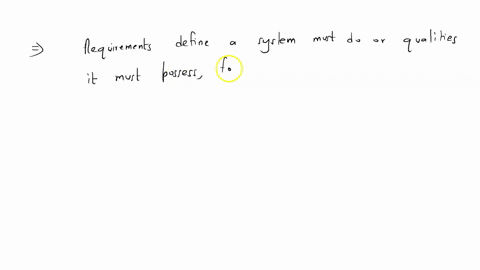 ⇒ Requirements define a system must do or qualities
it must possess, fo